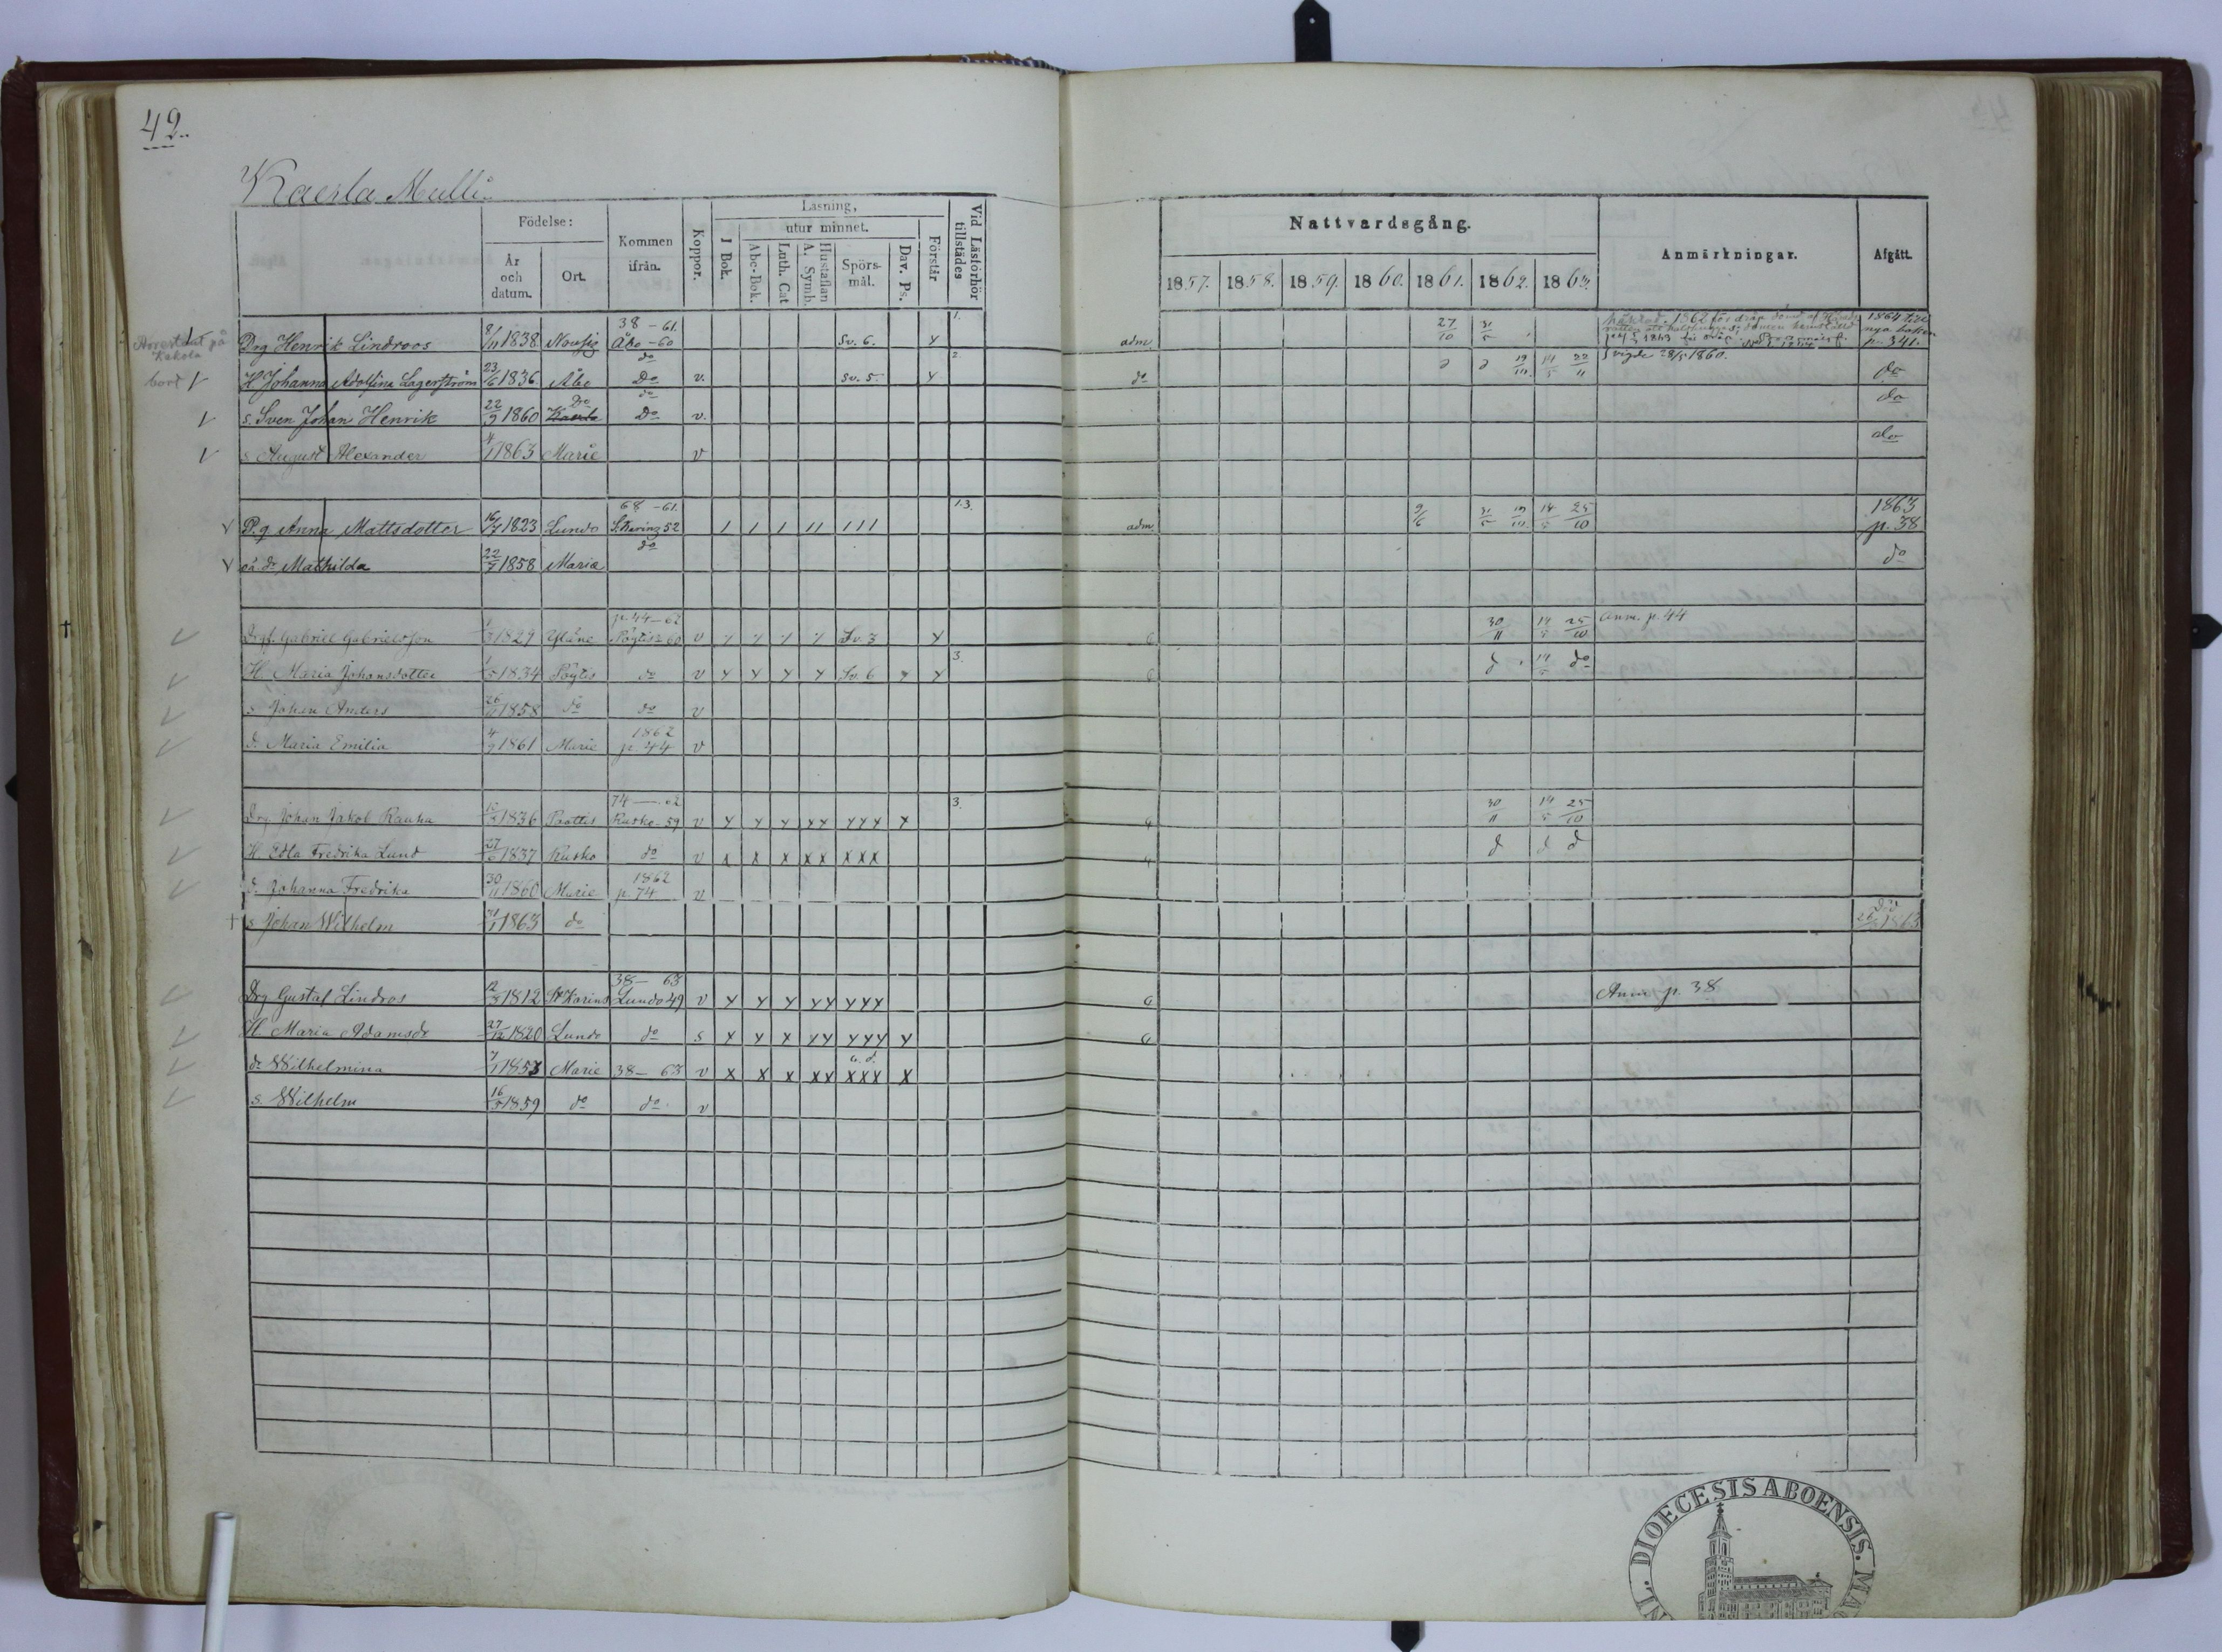 42.
Kaerla Mulli.
Födelse:
År och datum.
Ort.
Kommen ifrån.
Koppor.
Läsning,
I Bok.
utur minnet.
Abc-Bok.
Luth. Cat
Hustaflan A. Symb.
Spörsmål.
Dav. Ps.
Förstår
Vid Läsförhör tillstädes
Nattvardsgång.
1857. 1858. 1859. 1860. 1861. 1862. 1863.
Anmärkningar.
Afgått.
Arrestant på Kakola
38 - 61. 1.
Drg Henrik Lindroos 8/11 1838 Nousis Åbo - 60 Sv. 6. Y adm. 27/10 31/5 1864 till nya boken p. 341.
bort
H. Johanna Adolfina Lagerström 23/6 1836 Åbo do Do v. Sv. 5. Y 2 do 19/10 14/5 22/11 vigde 28/5 1860. do
s. Sven Johan Henrik 22/9 1860 Do do Do v. do
s. August Alexander 4/1 1863 Marie v do
P.g. Anna Mattsdotter 16/7 1823 Lundo 68 - 61. S:t Karins 52 / / / // /// 1.3. adm. 9/6 31/5 19/10 14/5 25/10 1863 p. 38
oä. dr Mathilda 22/7 1858 Maria do do
Drg. Gabriel Gabrielsson 1/3 1829 Yläne p. 44 - 62 Pöytis 60 v Sv. 3 Y 6 30/11 14/5 25/10 Anm. p. 44
H. Maria Johansdotter 1/5 1834 Pöytis do v Y Y Y Y Sv. 6 Y Y 3. 6 d 14/5 do
s. Johan Anders 26/11 1858 do do v
d. Maria Emilia 4/9 1861 Marie 1862 p. 44 v
Drg. Johan Jakob Rauha 1836 Paattis 74 - 62 Rusko - 59 v Y Y Y YY YYY Y 3. 4 30/11 14/5 25/10
H. Edla Fredrika Lund 27/6 1837 Rusko do v x x x xx xxx 4 d d d
d. Johanna Fredrika 30/11 1860 Marie 1862 p. 74 v
† s. Johan Wilhelm 1863 do död 1863
Drg Gustaf Lindros 12/3 1812 S:t Karins 38 - 63 Lundo 49 v Y Y Y YY YYY 6 Anm p. 38
H. Maria Adamsdr 27/12 1820 Lundo do s x x x YY YYY Y 6
dr Wilhelmina 7/1 1853 Marie 38 - 63 v x x x xx xxx x
s. Wilhelm 16/5 1859 do do v
DIOECESIS ABOENSIS.